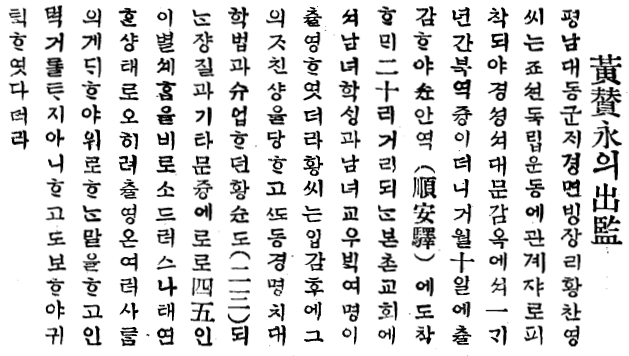 黃贊永의出監
평남대동군저경면빙장리황찬영
씨는죠션독립운동에관계쟈로피
착되야경셩셔대문감옥에셔一긔
년간복역즁이더니거월十일에츌
감ᄒᆞ야슌안역(順安驛)에도착
ᄒᆞᄆᆡ二十리거리되ᄂᆞᆫ본촌교회에
셔남녀학싱과남녀교우ᄇᆡᆨ여명이
츌영ᄒᆞ엿더라황씨는입감후에그
의ᄌᆞ친샹을당ᄒᆞ고ᄯᅩ동경명치대
학법과슈업ᄒᆞ던황슌도(二三)되
ᄂᆞᆫ쟝질과기타문즁에로로四五인
이별셰홈을비로소드러스나태연
ᄒᆞᆫ샹태로오히려츌영온여러사ᄅᆞᆷ
의게ᄃᆡᄒᆞ야위로ᄒᆞᄂᆞᆫ말을ᄒᆞ고인
력거를ᄐᆞ지아니ᄒᆞ고도보ᄒᆞ야귀
ᄐᆡᆨᄒᆞ엿다더라